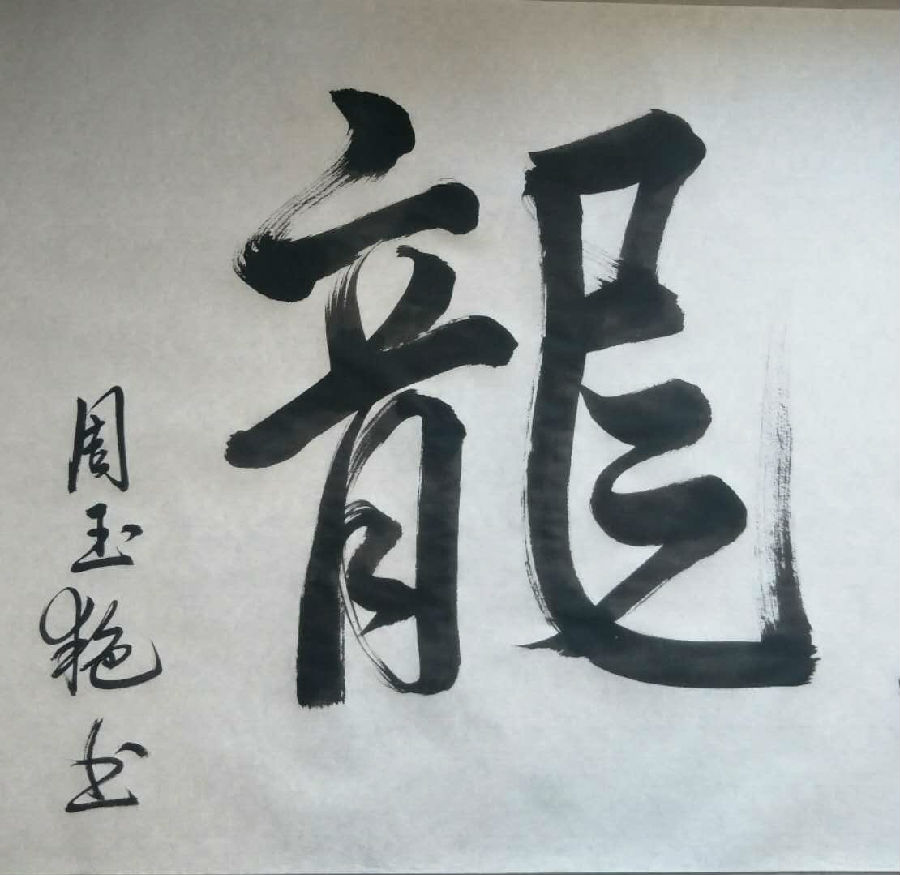 龍
周玉艳书